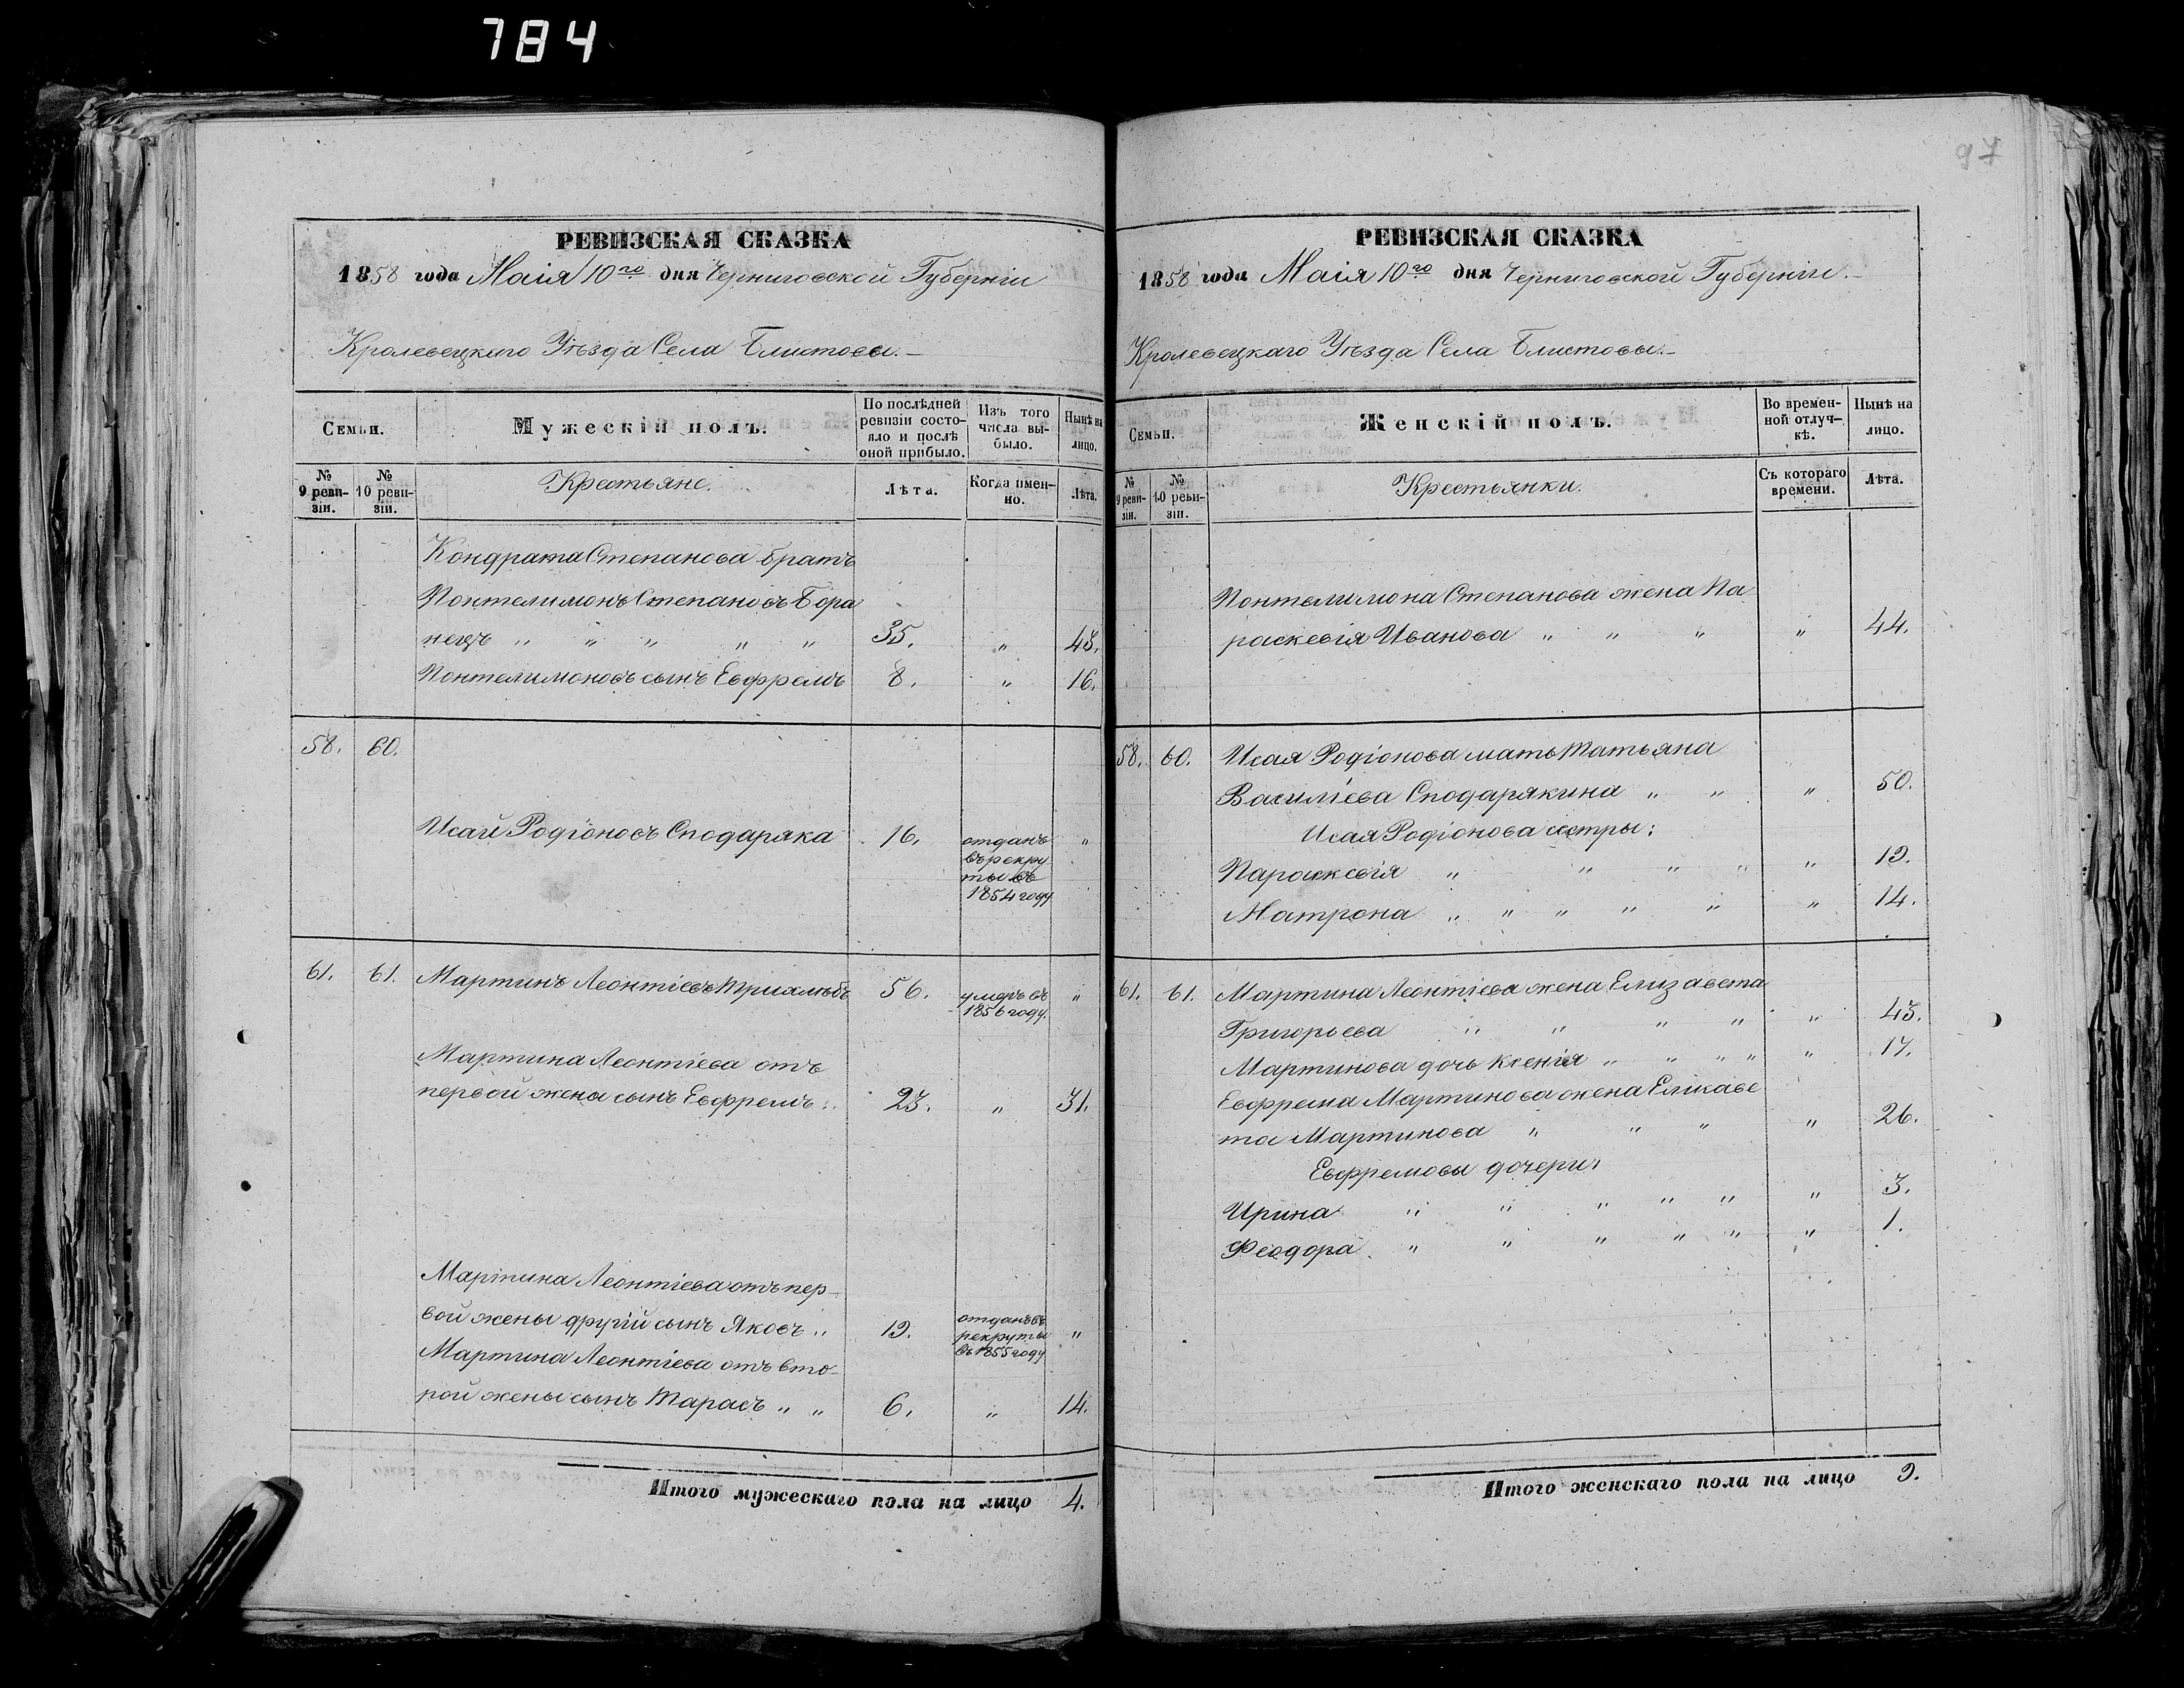 784
РЕВИЗСКАЯ СКАЗКА
1858 года Маія 10го дня Черниговской Губерніи
Кролевецкаго Уѣзда Села Блистовы.-
Семьи.
Мужескій полъ.
По послѣдней ревизіи состояло и послѣ оной прибыло.
Изъ того числа выбыло.
Нынѣ на лицо.
№ 9 ревизіи.
№ 10 ревизіи.
Крестьяне.
Лѣта.
Когда именно.
Лѣта.
Кондрата Степанова братъ
Понтелимонъ Степановъ Бора
нецъ " " " " " 35. "
Понтелимоновъ сынъ Евфремъ 8. " 16.
58. 60.
Исай Родіоновъ Сподаряка 16. отданъ "
въ рекру
ты въ
1854 году
61. 61. Мартинъ Леонтіевъ 56. умеръ въ "
1856 году.
Мартина Леонтіева отъ
первой жены сынъ Евфремъ 23. " 31.
Мартина Леонтіева отъ пер-
вой жены другій сынъ Яковъ " 19. отданъ въ "
рекруты
въ 1855 году
Мартина Леонтіева отъ вто-
рой жены сынъ Тарасъ " " 6. " 14.
Итого мужескаго пола на лицо 4.
97
РЕВИЗСКАЯ СКАЗКА
1858 года Маія 10го дня Черниговской Губерніи.-
Кролевецкаго Уѣзда Села Блистовы.-
Семьи.
Женскій полъ.
Во временной отлучкѣ.
Нынѣ на лицо.
№ 9 ревизіи.
№ 10 ревизіи.
Крестьянки.
Съ котораго времени.
Лѣта.
Понтелимона Степанова жена Па
раскевія Иванова " " " " 44.
58. 60. Исая Родіонова мать Татьяна
Василіева Сподарякина " " " 50.
Исая Родіонова сестры:
Параскевія " " " " " 19.
Матрона " " " " " " 14.
61. 61. Мартина Леонтіева жена Елизавета
Григорьева " " " " " 43.
Мартинова дочь Ксенія " " " " " 17.
Евфрема Мартинова жена Елисаве
та Мартинова " " " " 26.
Евфремовы дочери:
Ирина " " " " " " 3.
Феодора " " " " " " 1.
Итого женскаго пола на лицо 9.